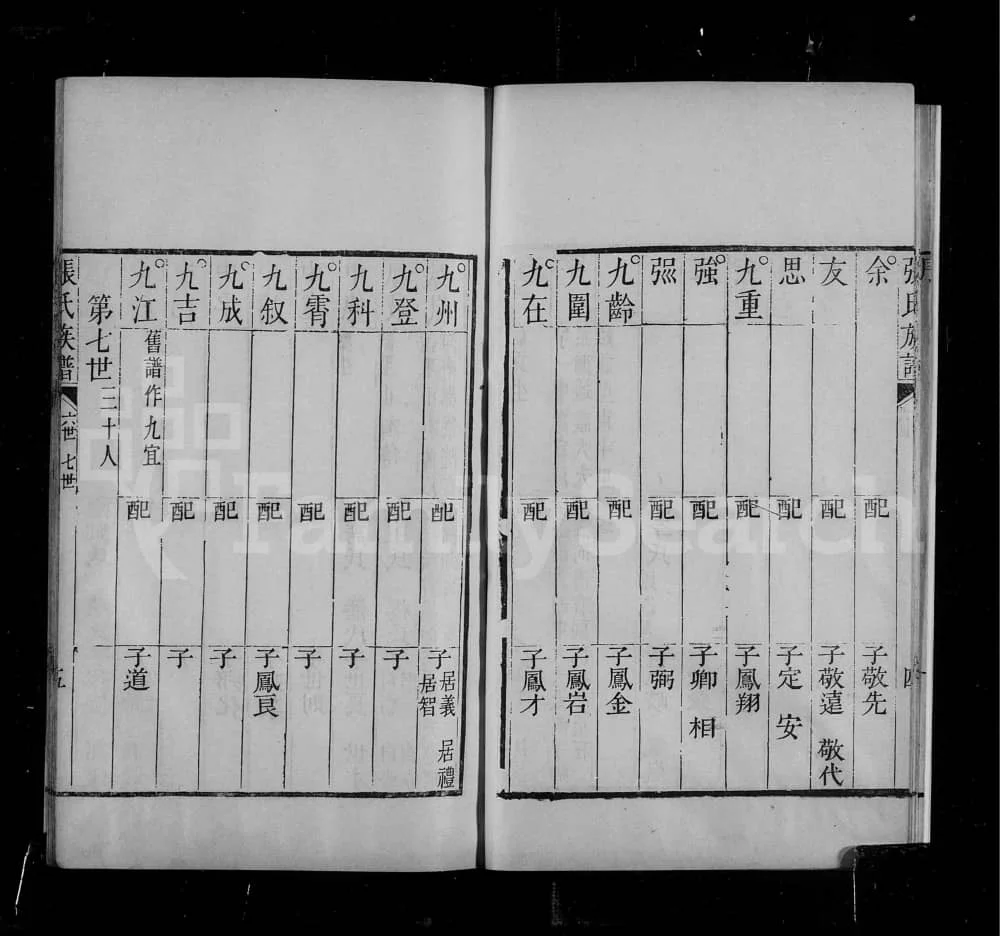 張氏族譜
四
余 配 子敬先
友 配 子敬遠 敬代
思 配 子定 安
九重 配 子鳳翔
強 配 子卿 相
㢲 配 子弼
九齡 配 子鳳金
九圍 配 子鳳岩
九在 配 子鳳才
九州 配 子居義 居禮 居智
九登 配 子
九科 配 子
九霄 配 子
九叙 配 子鳳良
九成 配 子
九吉 配 子
九江 舊譜作九宜 配 子道
第七世 三十人
張氏族譜 六世 七世
五
FamilySearch